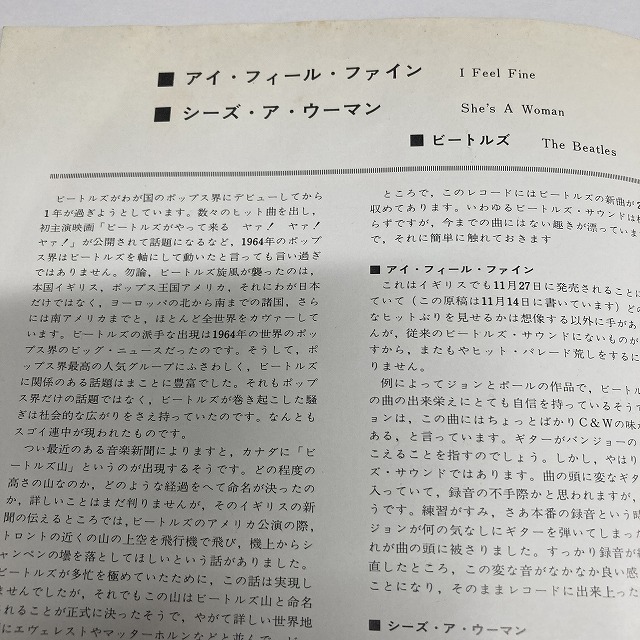 ■ アイ・フィール・ファイン I Feel Fine
■ シーズ・ア・ウーマン She's A Woman
■ ビートルズ The Beatles
ビートルズがわが国のポップス界にデビューしてから
1年が過ぎようとしています。数々のヒット曲を出し,
初主演映画「ビートルズがやって来る ヤァ! ヤァ!
ヤァ!」が公開されて話題になるなど, 1964年のポップ
ス界はビートルズを軸にして動いたと言っても言い過ぎ
ではありません。勿論, ビートルズ旋風が襲ったのは,
本国イギリス, ポップス王国アメリカ, それにわが日本
だけではなく, ヨーロッパの北から南までの諸国, さら
には南アメリカまでと, ほとんど全世界をカヴァーして
います。ビートルズの派手な出現は1964年の世界のポッ
プス界のビッグ・ニュースだったのです。そうして, ポ
ップス界最高の人気グループにふさわしく, ビートルズ
に関係のある話題はまことに豊富でした。それもポップ
ス界だけの話題ではなく, ビートルズが巻き起こした騒
ぎは社会的な広がりをさえ持っていたのです。なんとも
スゴイ連中が現われたものです。
つい最近のある音楽新聞によりますと, カナダに「ビ
ートルズ山」というのが出現するそうです。どの程度の
高さの山なのか, どのような経過をへて命名が決ったの
か, 詳しいことはまだ判りませんが, そのイギリスの新
聞の伝えるところでは, ビートルズのアメリカ公演の際,
トロントの近くの山の上空を飛行機で飛び, 機上からシ
ャンペンの壜を落としてほしいという話がありました。
ビートルズが多忙を極めていたために, この話は実現し
ませんでしたが, それでもこの山はビートルズ山と命名
されることが正式に決ったそうで, やがて詳しい世界地
にエヴェレストやマッターホルンなどと並んで, ビー
ところで, このレコードにはビートルズの新曲が2
収めてあります。いわゆるビートルズ・サウンドは相
らずですが, 今までの曲にはない趣きが漂っていま
で, それに簡単に触れておきます
■ アイ・フィール・ファイン
これはイギリスでも11月27日に発売されることに
ていて (この原稿は11月14日に書いています) どの
なヒットぶりを見せるかは想像する以外に手があ
んが, 従来のビートルズ・サウンドにないものが
すから, またもやヒット・パレード荒しをするに
りません。
例によってジョンとポールの作品で, ビートル
の曲の出来栄えにとても自信を持っているそう
ョンは, この曲にはちょっとばかりC&Wの味が
ある, と言っています。ギターがバンジョーの
こえることを指すのでしょう。しかし, やはり
ズ・サウンドではあります。曲の頭に変なギ
入っていて, 録音の不手際かと思われますが,
うです。練習がすみ, さあ本番の録音という時
ジョンが何の気なしにギターを弾いてしまった
れが曲の頭に被さりました。すっかり録音が終
直したところ, この変な音がなかなか良い感
ことになり, そのままレコードに出来上った
■ シーズ・ア・ウーマン